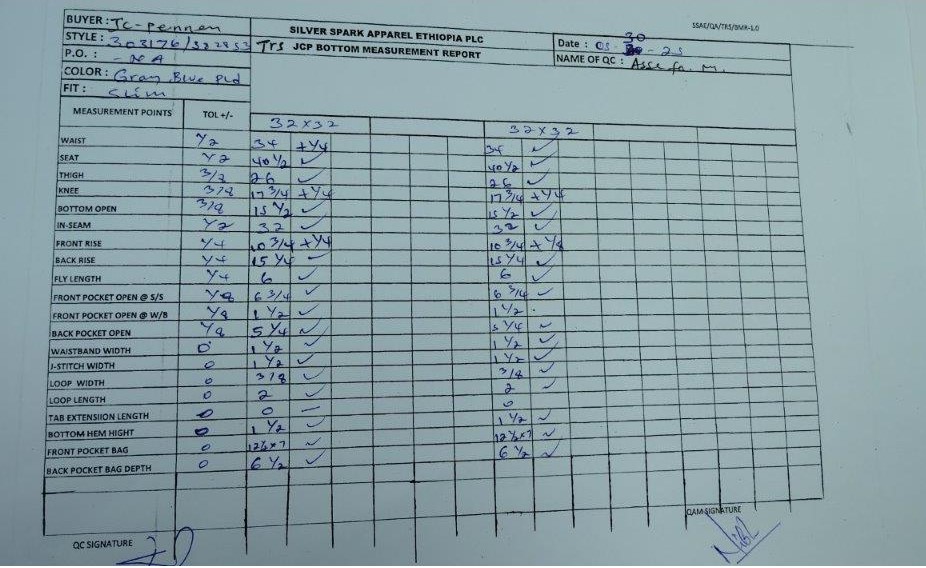 SSAE/QA/TRS/BMR-1.0
BUYER : JC-Penney
STYLE : 303176/
P.O. : - NA
COLOR : Gray Blue Pld
FIT : Slim
SILVER SPARK APPAREL ETHIOPIA PLC
Trs JCP BOTTOM MEASUREMENT REPORT
Date : 05-30-25
NAME OF QC : Assefa. M.
MEASUREMENT POINTS TOL +/- 32x32 32x32
WAIST 1/2 34 +1/4 34 ✓
SEAT 1/2 40 1/2 ✓ 40 1/2 ✓
THIGH 3/8 26 ✓ 26 ✓
KNEE 3/8 17 3/4 +1/4 17 3/4 +1/4
BOTTOM OPEN 3/8 15 1/2 ✓ 15 1/2 ✓
IN-SEAM 1/2 32 ✓ 32 ✓
FRONT RISE 1/4 10 3/4 +1/4 10 3/4 +1/8
BACK RISE 1/4 15 1/4 ✓ 15 1/4 ✓
FLY LENGTH 1/4 6 ✓ 6 ✓
FRONT POCKET OPEN @ S/S 1/8 6 3/4 ✓ 6 3/4 ✓
FRONT POCKET OPEN @ W/B 1/8 1 1/2 ✓ 1 1/2 .
BACK POCKET OPEN 1/8 5 1/4 ✓ 5 1/4 ✓
WAISTBAND WIDTH 0 1 1/2 ✓ 1 1/2 ✓
J-STITCH WIDTH 0 1 1/2 ✓ 1 1/2 ✓
LOOP WIDTH 0 3/8 ✓ 3/8 ✓
LOOP LENGTH 0 2 ✓ 2 ✓
TAB EXTENSIION LENGTH 0 0 — 0
BOTTOM HEM HIGHT 0 1 1/2 ✓ 1 1/2 ✓
FRONT POCKET BAG 0 12 1/2 x 7 ✓ 12 1/2 x 7 ✓
BACK POCKET BAG DEPTH 0 6 1/2 ✓ 6 1/2 ✓
QC SIGNATURE
QAM SIGNATURE